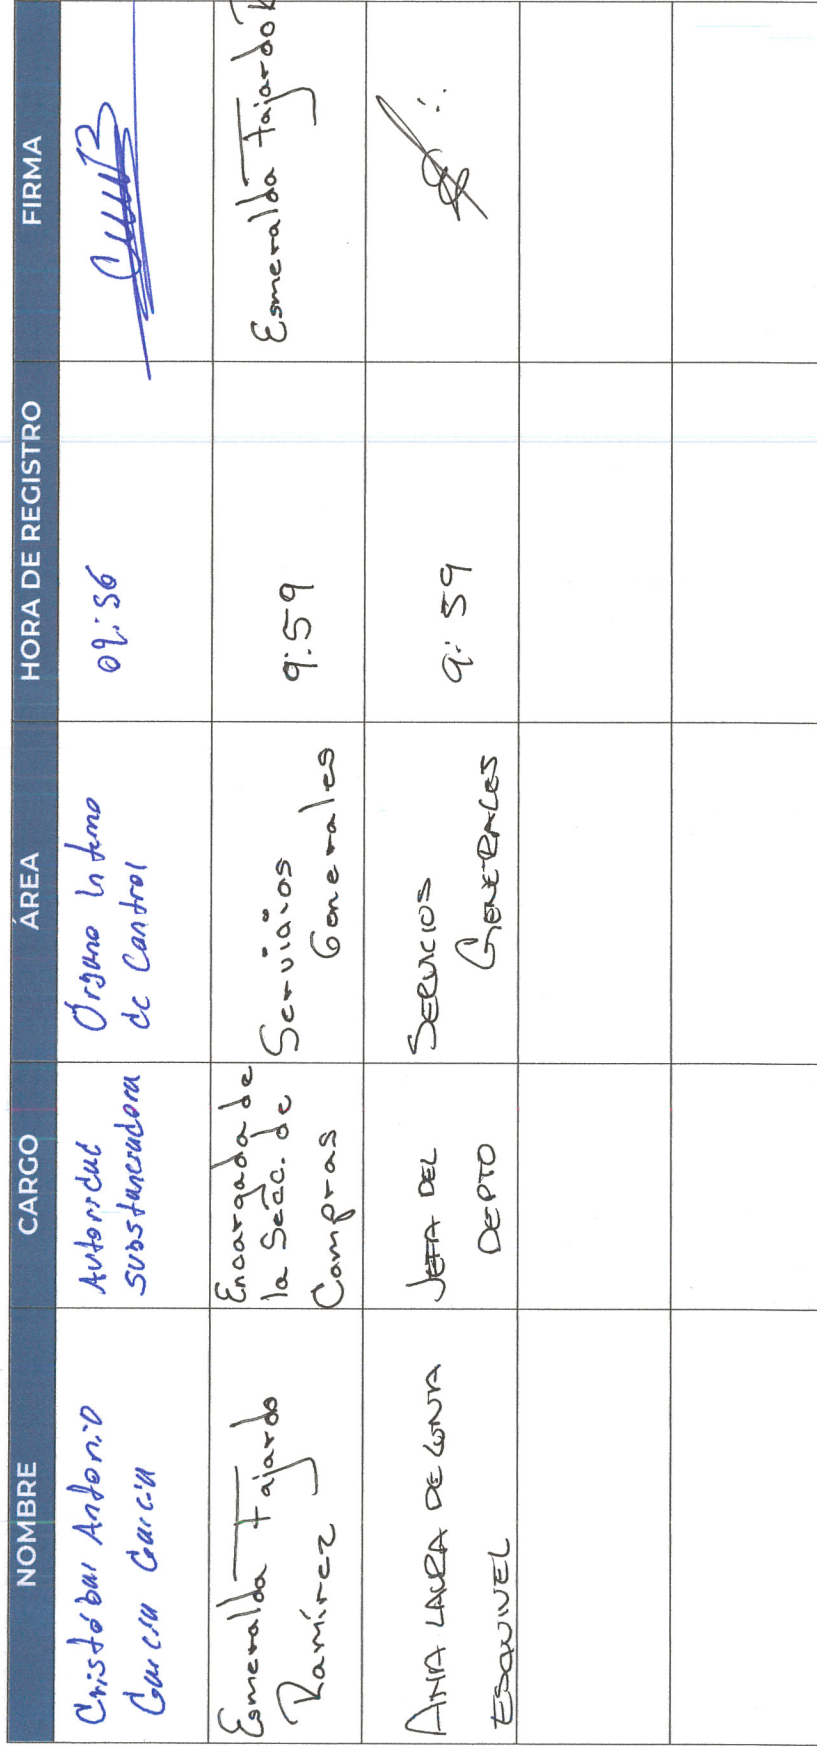 NOMBRE CARGO ÁREA HORA DE REGISTRO FIRMA
Cristóbal Antonio
García García
Autoridad
Substanciadora
Órgano Interno
de Control
09:56
Esmeralda Fajardo
Ramírez
Encargada de
la Secc. de
Compras
Servicios
Generales
9:59
Esmeralda Fajardo R
ANA LAURA DE
ESQUIVEL
JEFA DEL
DEPTO
SERVICIOS
GENERALES
9:59